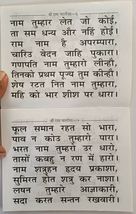 नाम तुम्हार लेत जो कोई।
ता सम धन्य और नहिं होई।
राम नाम है अपरम्पारा।
चारिउ वेदन जाहि पुकारा।
गणपति नाम तुम्हारो लीन्ही।
तिनको प्रथम पूज्य तुम कीन्ही।
शेष रटत नित नाम तुम्हारा।
महि को भार शीश पर धारा।
फूल समान रहत सो भारा,
पाव न कोउ तुम्हारो पारा।
भरत नाम तुम्हरो उर धारो,
तासों कबहु न रण में हारो।
नाम शत्रुहन हृदय प्रकाशा,
सुमिरत होत शत्रु कर नाशा।
लषन तुम्हारे आज्ञाकारी,
सदा करत सन्तन रखवारी।